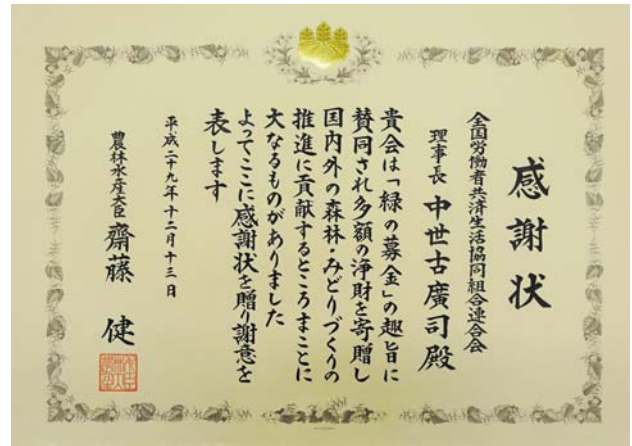 感謝状
全国労働者共済生活協同組合連合会
理事長 中世古廣司殿
貴会は「緑の募金」の趣旨に
賛同され多額の浄財を寄贈し
国内外の森林・みどりづくりの
推進に貢献するところまことに
大なるものがありました
よってここに感謝状を贈り謝意を
表します
平成二十九年十二月十三日
農林水産大臣 齋藤 健